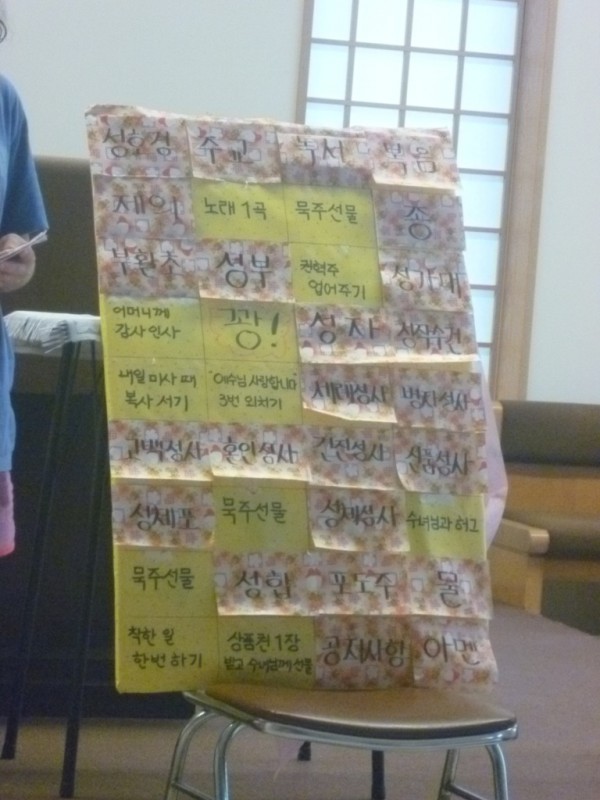 성호경 주교 독서 복음
제의 노래 1곡 묵주선물 종
부활초 성부 권혁주 업어주기 성가대
어머니께 감사 인사 꽝! 성자 성작수건
내일 미사 때 복사 서기 "예수님 사랑합니다" 3번 외치기 세례성사 병자성사
고백성사 혼인성사 견진성사 신품성사
성체포 묵주선물 성체성사 수녀님과 허그
묵주선물 성합 포도주 물
착한 일 한번 하기 상품권 1장 받고 수녀님께 선물 공지사항 아멘